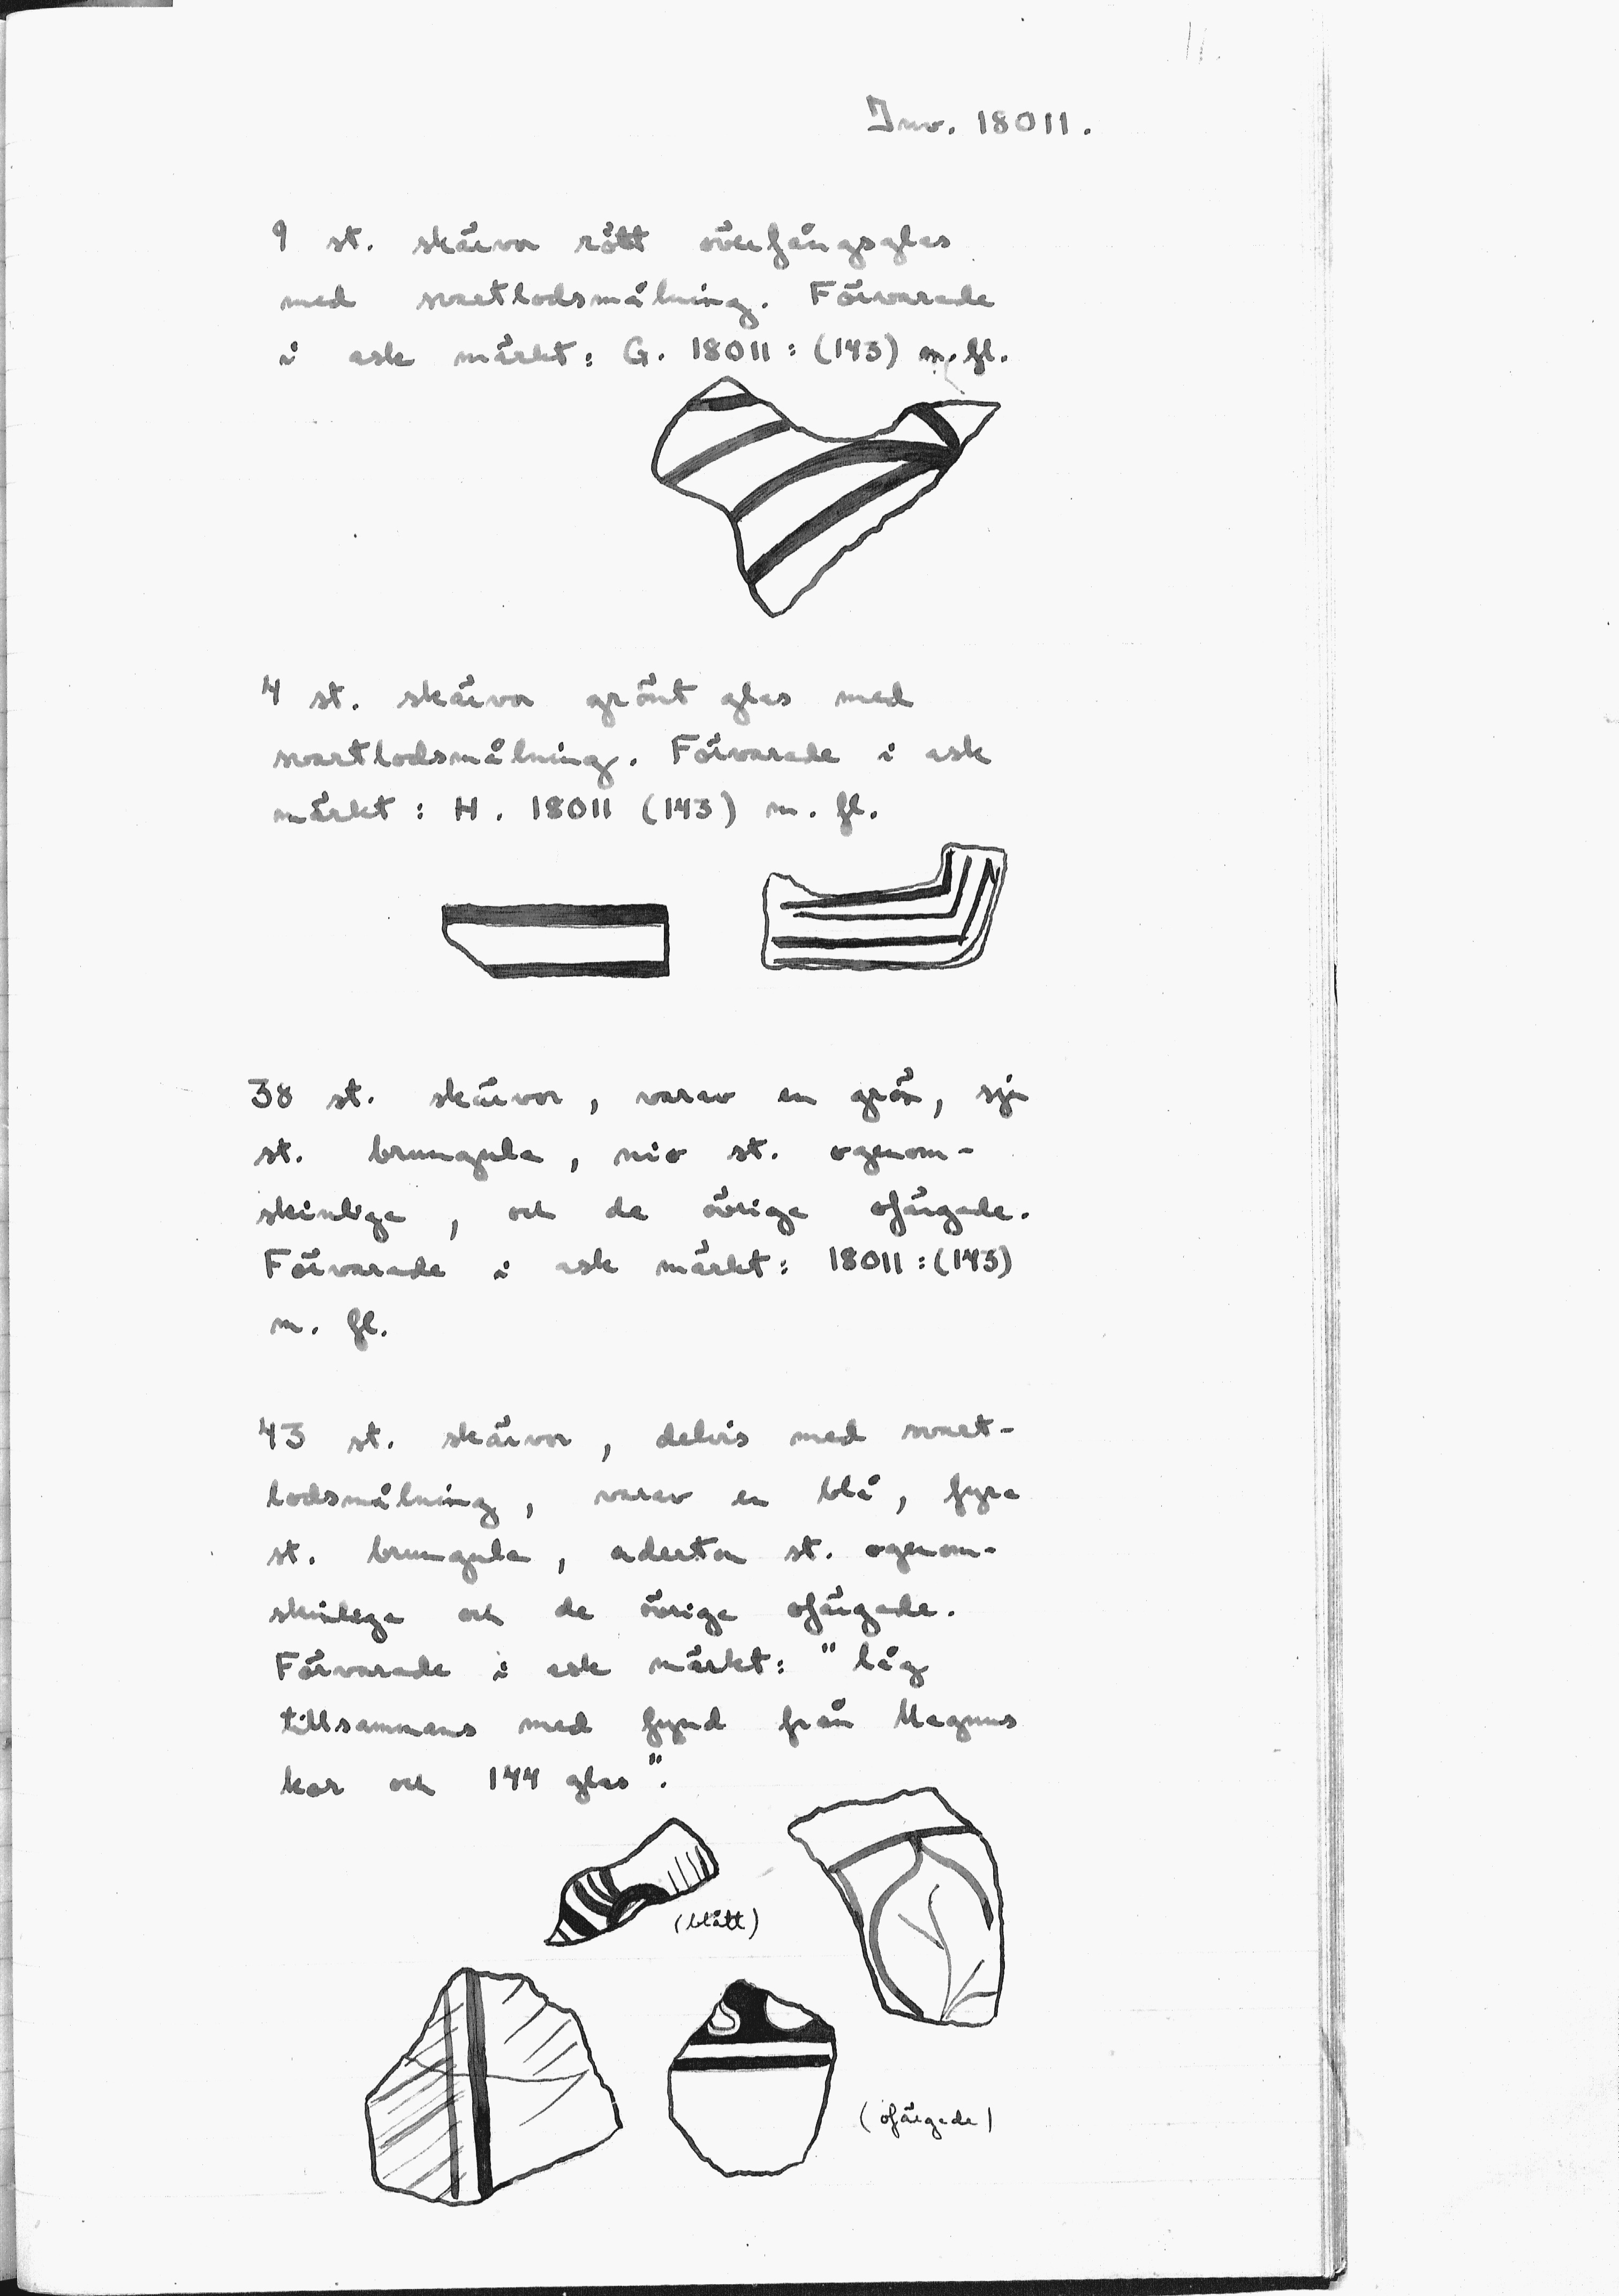 11.
Inv. 18011.
9 st. skärvor rött överfångsglas
med svartlodsmålning. Förvarade
i ask märkt: G. 18011: (143) m. fl.
4 st. skärvor grönt glas med
svartlodsmålning. Förvarade i ask
märkt: H. 18011 (143) m. fl.
38 st. skärvor, varav en grön, sju
st. brungula, nio st. ogenom-
skinliga, och de övriga ofärgade.
Förvarade i ask märkt: 18011:(143)
m. fl.
43 st. skärvor, delvis med svart-
lodsmålning, varav en blå, fyra
st. brungula, aderton st. ogenom-
skinliga och de övriga ofärgade.
Förvarade i ask märkt: "låg
tillsammans med fynd från Magnus
kor och 144 glas".
(blått)
(ofärgade)